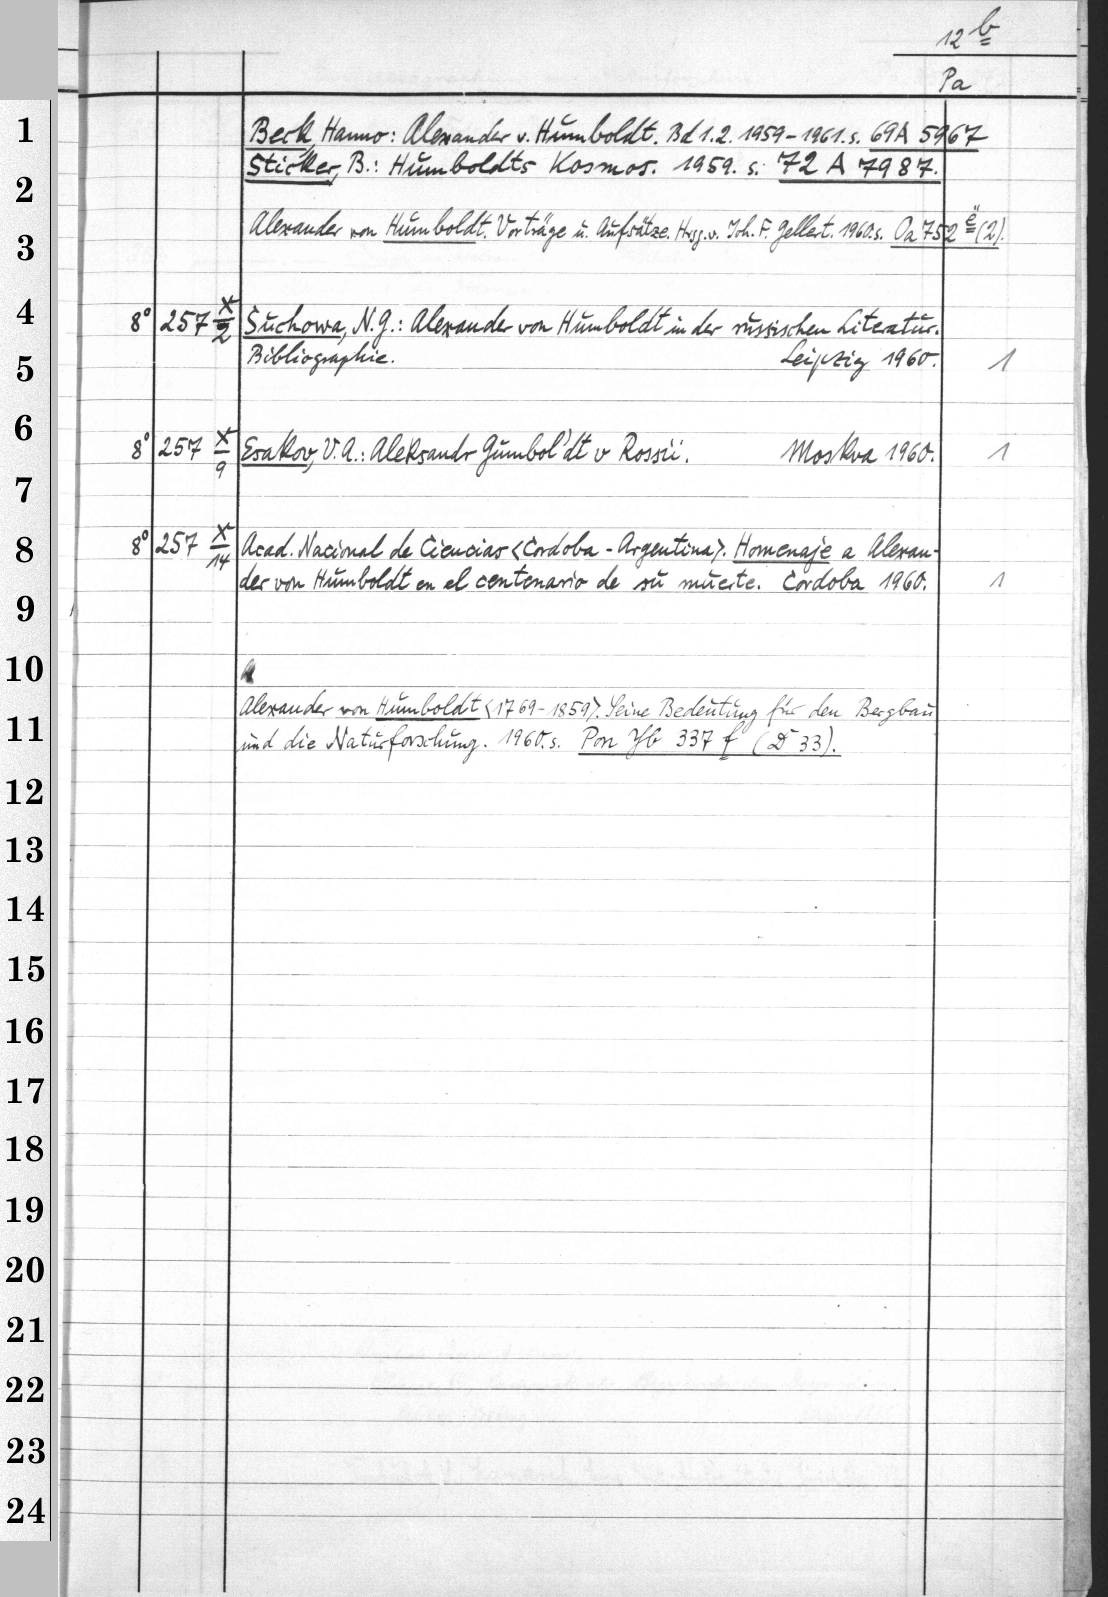 12 b
Pa
1
Beck, Hanno: Alexander v. Humboldt. Bd 1.2. 1959-1961. s. 69 A 5967
Sticker, B.: Humboldts Kosmos. 1959. s. 72 A 7987.
2
Alexander von Humboldt. Vorträge u. Aufsätze. Hrsg. v. Joh. F. Gellert. 1960. s. Oa 752 ë (2).
3
4
8° 257 X/2 Suchowa, N.G.: Alexander von Humboldt in der russischen Literatur.
Bibliographie. Leipzig 1960. 1
5
6
8° 257 X/9 Esakov, V.A.: Aleksandr Gumbol'dt v Rossii. Moskva 1960. 1
7
8
8° 257 X/14 Acad. Nacional de Ciencias <Cordoba - Argentina>. Homenaje a Alexan-
der von Humboldt en el centenario de su muerte. Cordoba 1960. 1
9
10
11
Alexander von Humboldt <1769-1859>. Seine Bedeutung für den Bergbau
und die Naturforschung. 1960. s. Pon Yb 337 f (D 33).
12
13
14
15
16
17
18
19
20
21
22
23
24